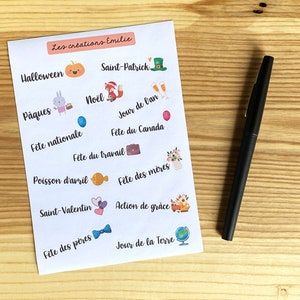 Les créations Emilie
Halloween
Saint-Patrick
Pâques
Noël
Jour de l'an
Fête nationale
Fête du Canada
Fête du travail
Poisson d'avril
Fête des mères
Saint-Valentin
Action de grâce
Fête des pères
Jour de la Terre